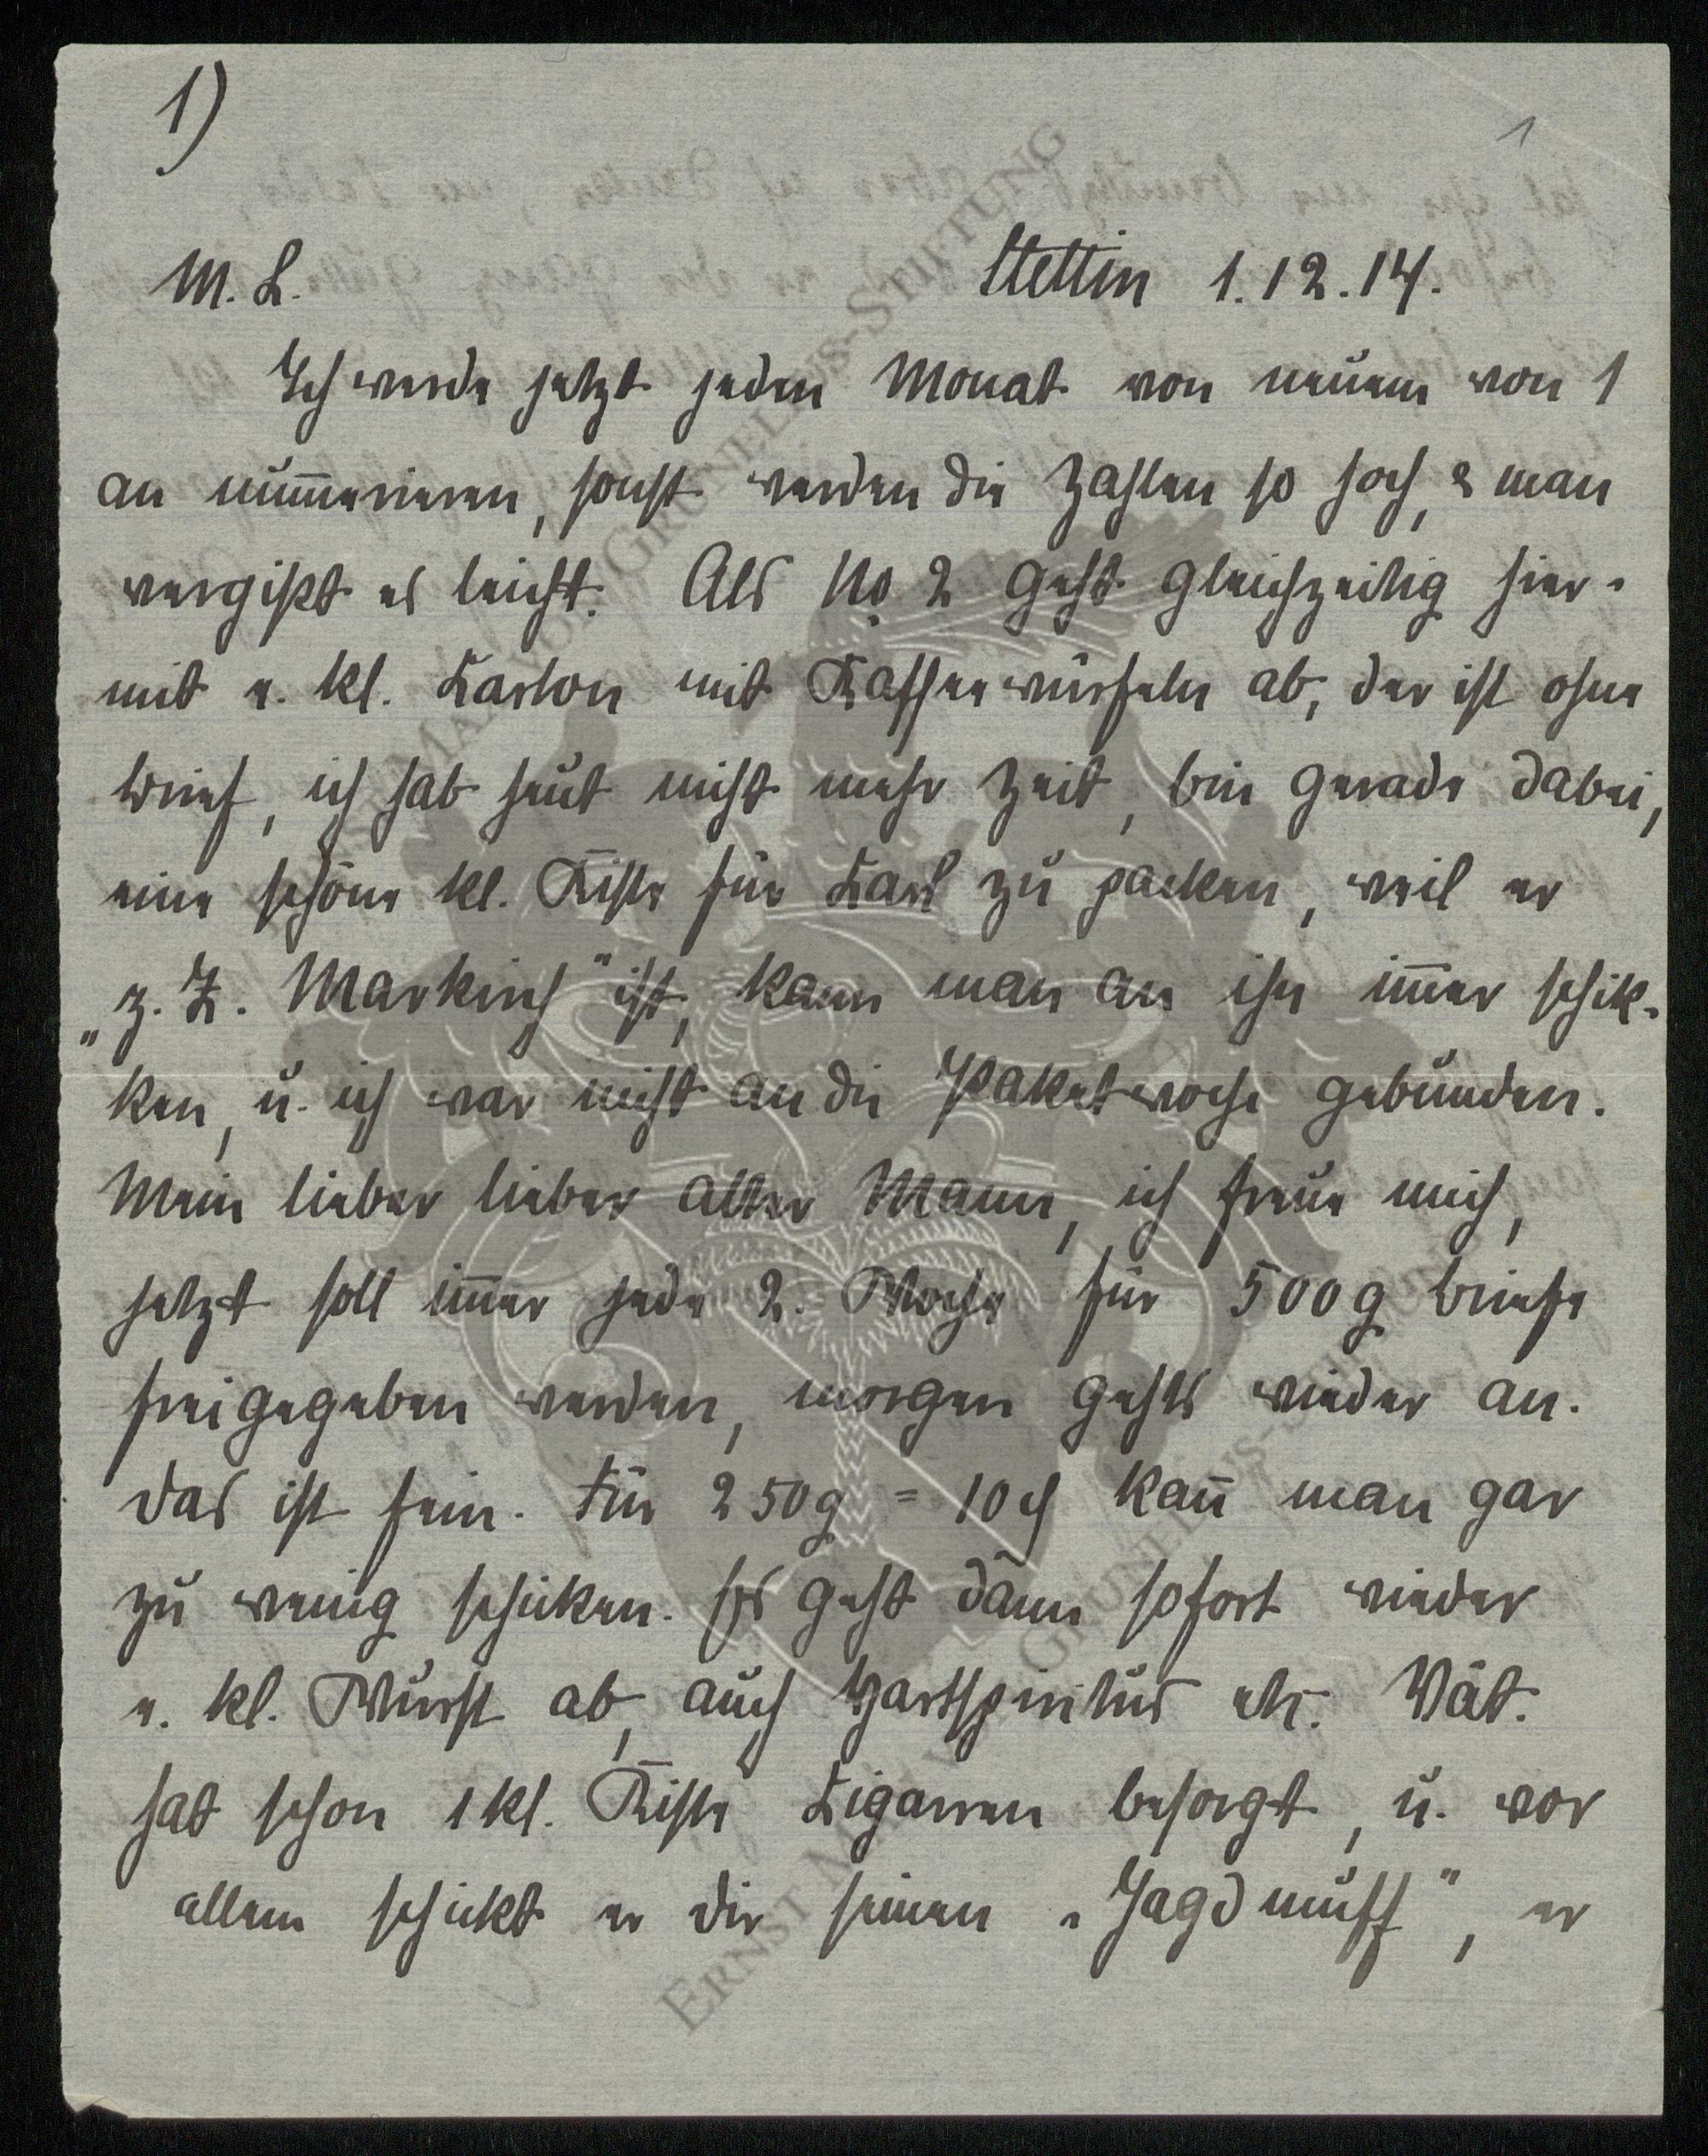 1)
1
M. L. Stettin 1.12.14.
Ich werde jetzt jeden Monat von neuem von 1
an num̅erieren, sonst werden die Zahlen so hoch, & man
vergißt es leicht. Als No 2 geht gleichzeitig hier-
mit e. kl. Karton mit Kaffeewürfeln ab, der ist ohne
Brief, ich hab heut nicht mehr Zeit, bin gerade dabei,
eine schöne kl. Kiste für Karl zu packen, weil er
„z. Z. Markirch" ist, kann man an ihn im̅er schik-
ken, u. ich war nicht an die Paketwoche gebunden.
Mein lieber lieber alter Mann, ich freue mich,
jetzt soll im̅er jede 2. Woche für 500g Briefe
freigegeben werden, morgen gehts wieder an.
Das ist fein. Für 250g = 10 ₰ kan̅ man gar
zu wenig schicken. Es geht dann sofort wieder
e. kl. Wurst ab, auch Hartspiritus etc. Vat.
hat schon 1 kl. Kiste Zigarren besorgt, u. vor
allem schickt er dir seinen „Jagdmuff", er
ERNST MAX VON GRUNELIUS-STIFTUNG